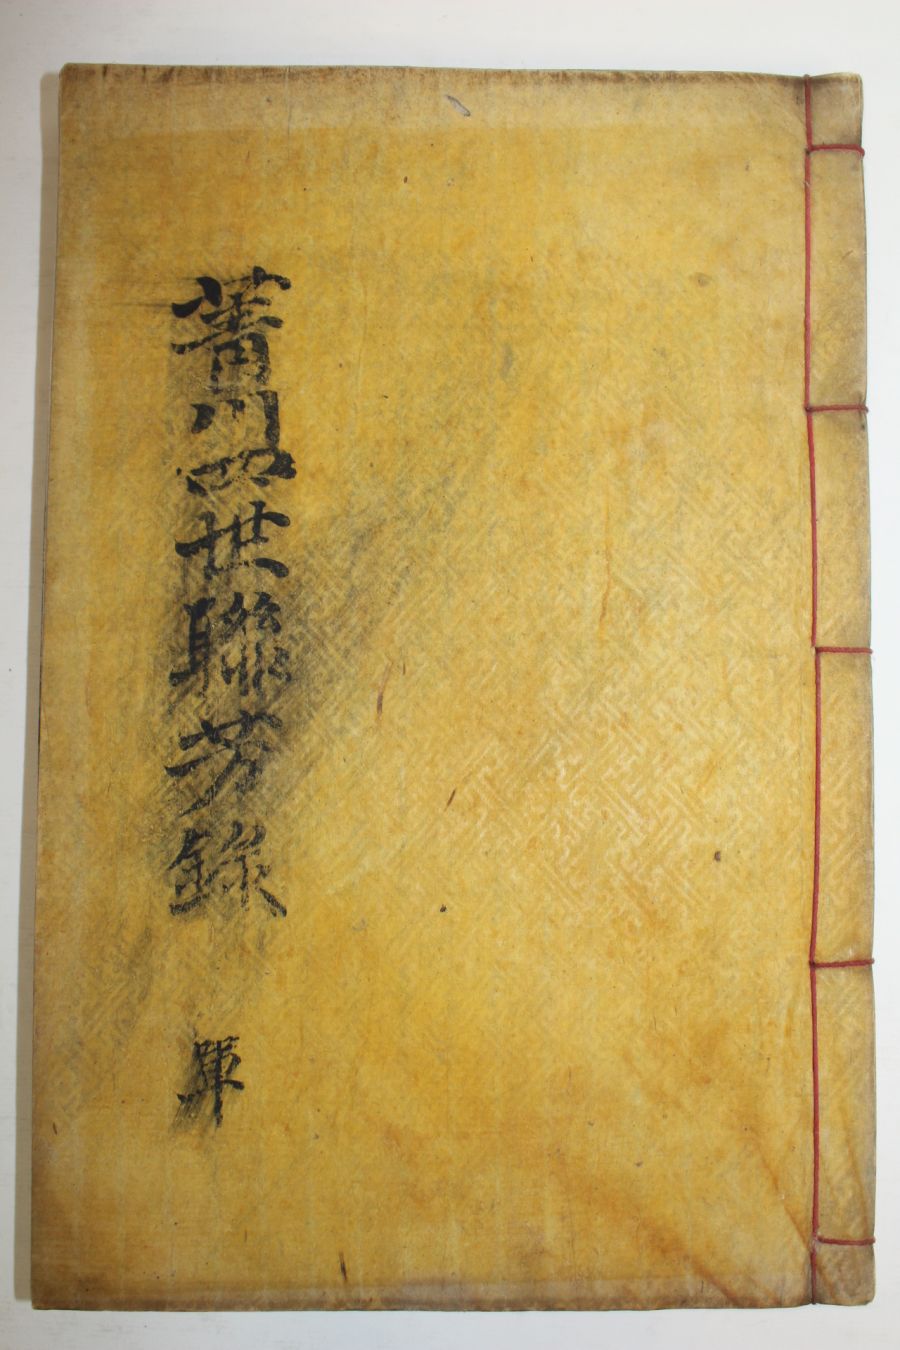 菁川四世聯芳錄
單